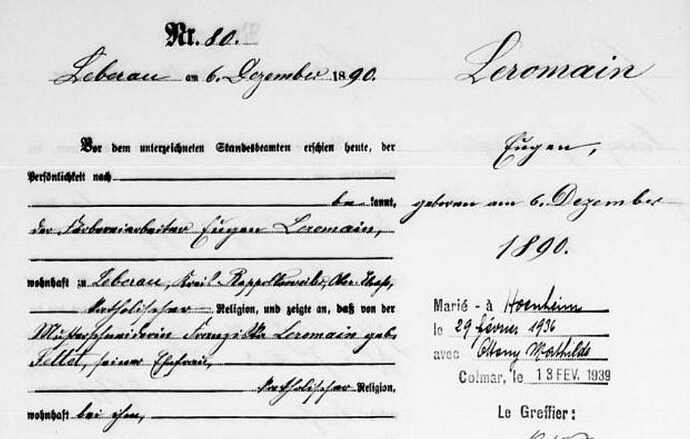 Nr. 80.
Leberau am 6. Dezember 1890.
Vor dem unterzeichneten Standesbeamten erschien heute, der
Persönlichkeit nach
be kannt,
der Färbereiarbeiter Eugen Leromain,
wohnhaft zu Leberau, Kreis Rappoltsweiler, Ober-Elsaß,
katholischer Religion, und zeigte an, daß von der
Franziska Leromain geb.
seiner Ehefrau,
katholischer Religion,
wohnhaft bei ihm,
Leromain
Eugen,
geboren am 6. Dezember
1890.
Marié - à Hoenheim
le 29 février 1936
avec Mathilde
Colmar, le 13 FEV. 1939
Le Greffier: